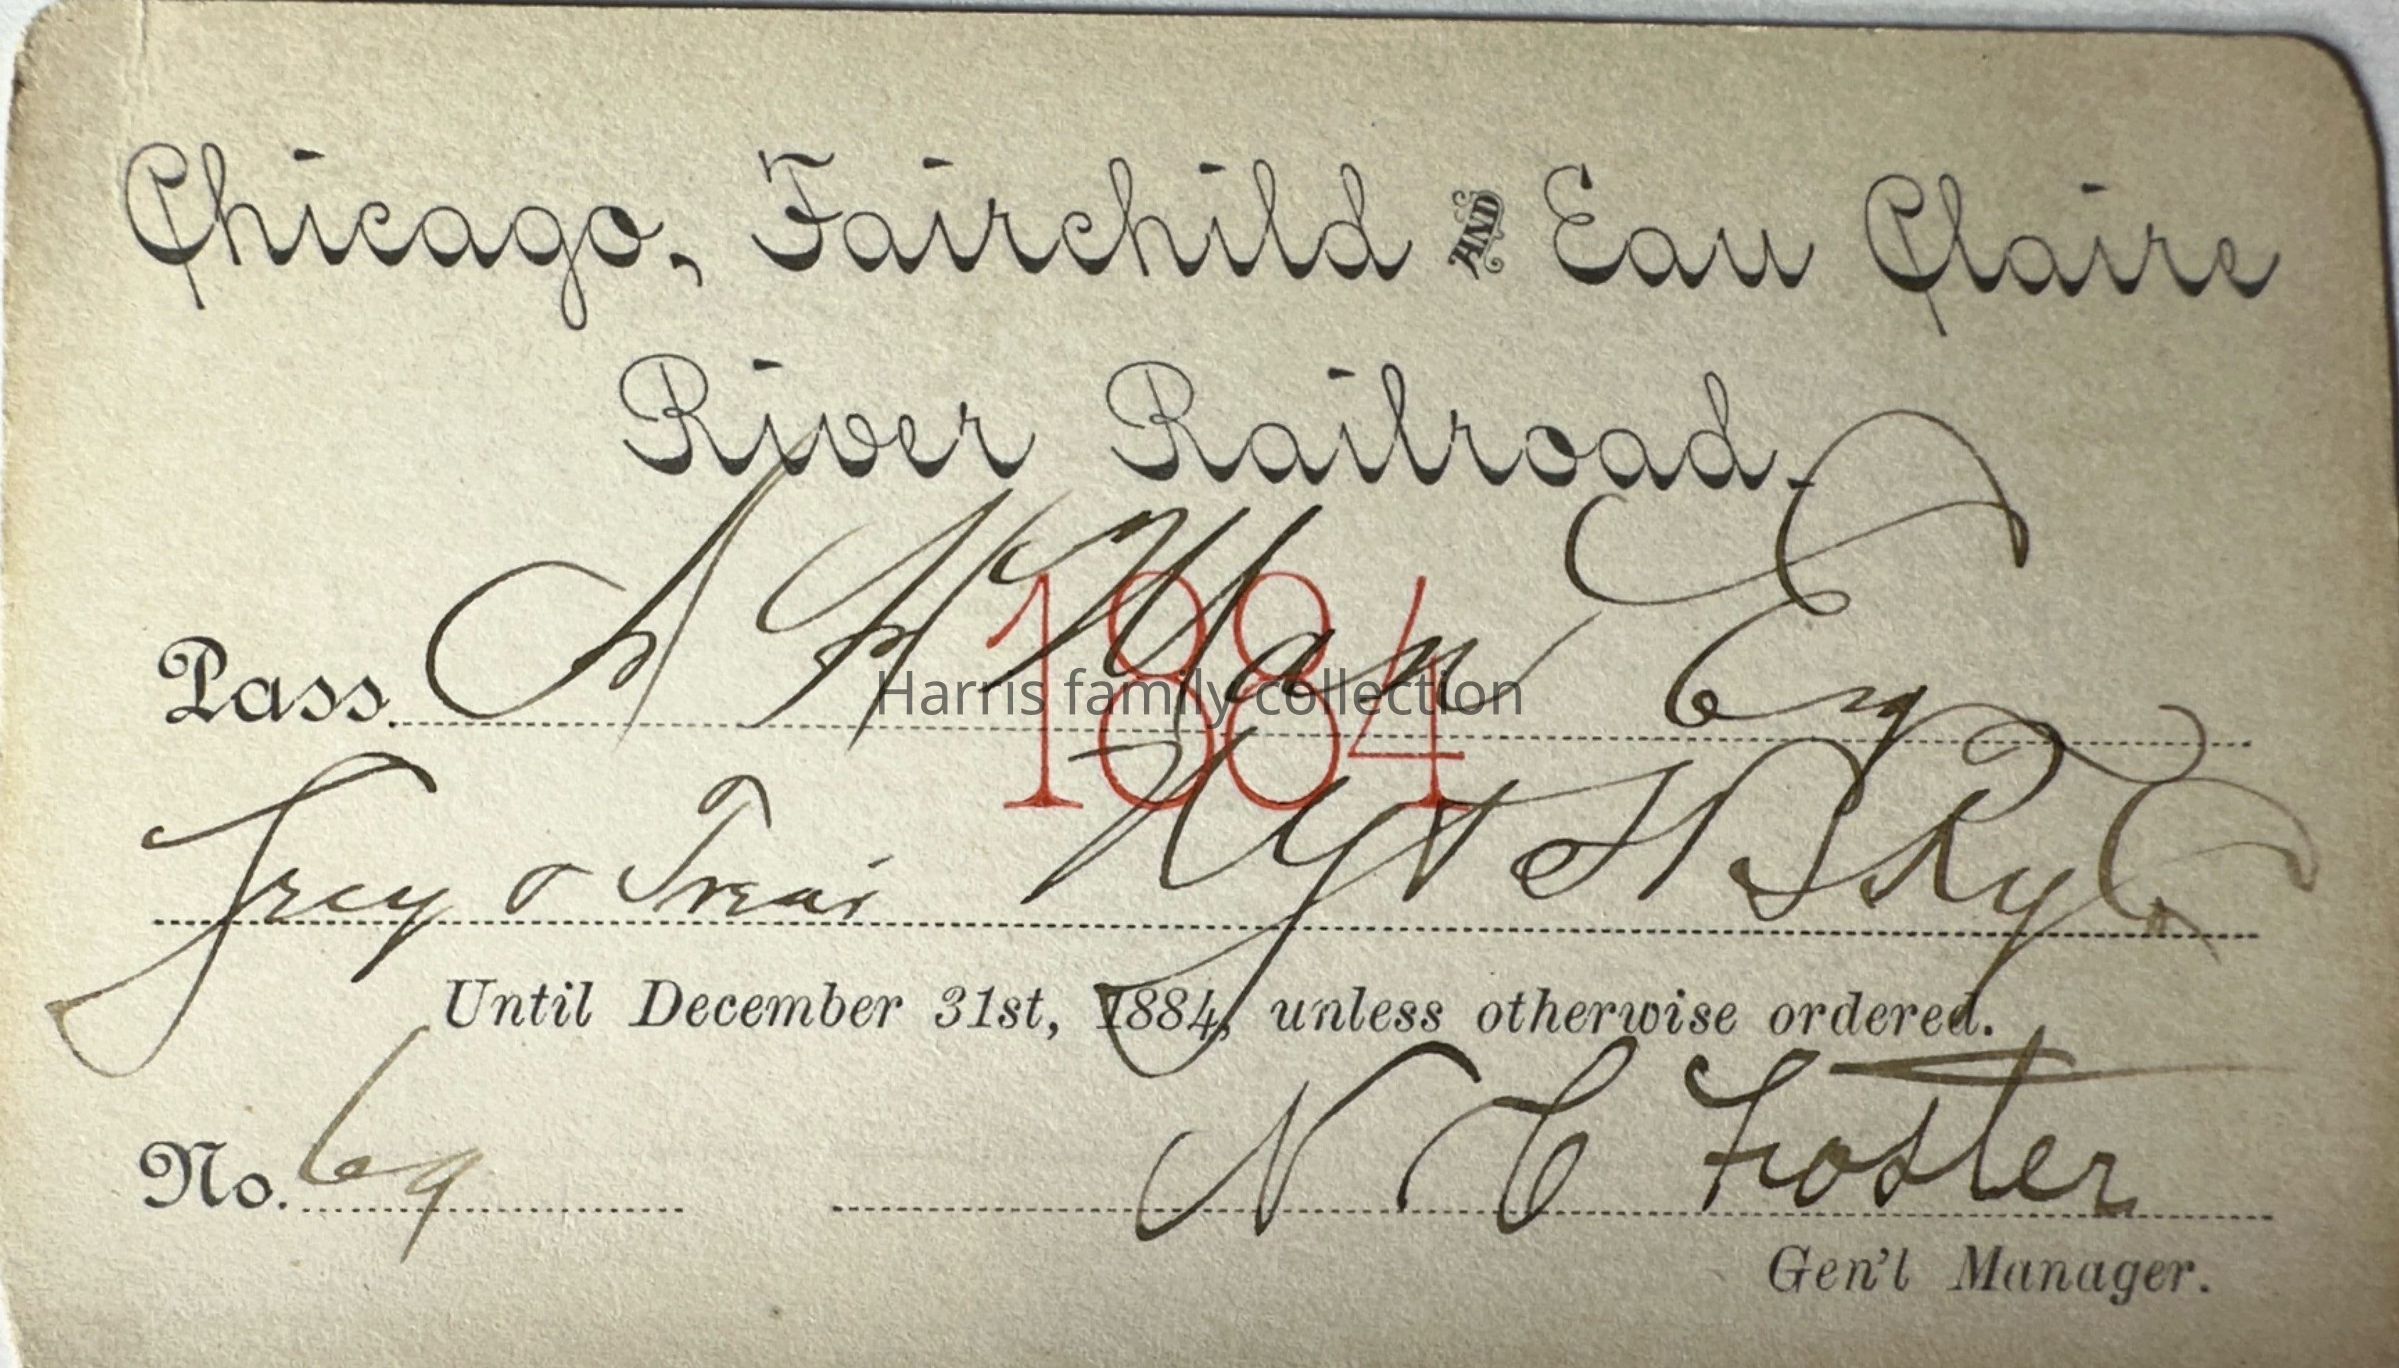 Chicago, Fairchild AND Eau Claire
River Railroad.
1884
Pass A F Man Esq
Harris family collection
Secy & Treas N.Y. & H B Ry Co
Until December 31st, 1884, unless otherwise ordered.
No. 69 N C Foster
Gen'l Manager.